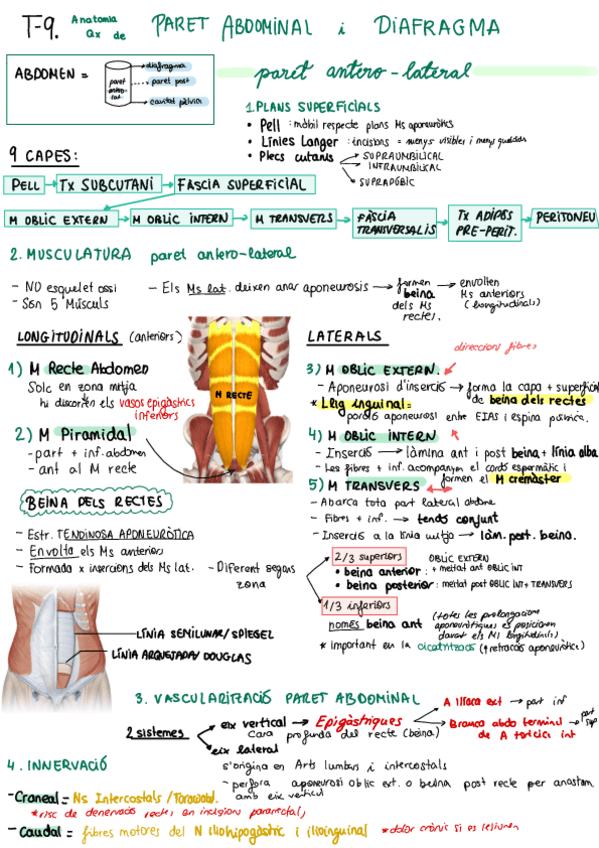 T-9. Anatomia Qx de PARET ABDOMINAL i DiAFRAGMA
ABDOMEN =
paret antero-lat.
diafragma
paret post
cavitat pèlvica
paret antero-lateral
1. PLANS SUPERFICIALS
• Pell : mòbil respecte plans Ms aponeuròtics
• Línies Langer : incisions = menys visibles i menys
• Plecs cutanis → SUPRAUMBILICAL
INFRAUMBILICAL
SUPRAPÚBIC
9 CAPES:
PELL → TX SUBCUTANI → FÀSCIA SUPERFICIAL
M OBLIC EXTERN → M OBLIC INTERN → M TRANSVERS → FÀSCIA TRANSVERSALIS → TX ADIPÓS PRE-PERIT. → PERITONEU
2. MUSCULATURA paret antero-lateral
- NO esquelet ossi
- Són 5 Músculs
- Els Ms lat. deixen anar aponeurosis → formen beina dels Ms rectes. → envolten Ms anteriors (longitudinals)
LONGITUDINALS (anteriors)
1) M Recte Abdomen
Solc en zona mitja
hi discorren els vasos epigàstrics inferiors
2) M Piramidal
- part + inf. abdomen
- ant al M recte
M RECTE
BEINA DELS RECTES
- Estr. TENDINOSA APONEURÒTICA
- Envolta els Ms anteriors
- Formada x insercions dels Ms lat.
- Diferent segons zona
LATERALS
direccions fibres
3) M OBLIC EXTERN.
- Aponeurosi d'inserció → forma la capa + superficial de beina dels rectes
* Llig inguinal =
porció aponeurosi entre EIAS i espina púbica.
4) M OBLIC INTERN
- Inserció → làmina ant i post beina + línia alba
- Les fibres + inf. acompanyen el cordó espermàtic i formen el M cremàster
5) M TRANSVERS
- Abarca tota part lateral abdome
- Fibres + inf. → tendó conjunt
- Inserció a la línia mitja → làm. post. beina.
2/3 superiors
• beina anterior : OBLIC EXTERN + meitat ant OBLIC INT
• beina posterior : meitat post OBLIC INT + TRANSVERS
1/3 inferiors
només beina ant (totes les prolongacions aponeuròtiques es posicionen davant els Ms longitudinals)
* important en la cicatrització (↑ retracció aponeuròtica)
LÍNIA SEMILUNAR / SPIEGEL
LÍNIA ARQUEJADA / DOUGLAS
3. VASCULARITZACIÓ PARET ABDOMINAL
2 sistemes
eix vertical → Epigàstriques
cara profunda del recte (beina)
A Ilíaca ext → part inf
Branca abdo terminal de A toràcica int → part sup
eix lateral
s'origina en Arts lumbars i intercostals
- perfora aponeurosi oblic ext. o beina post recte per anastom. amb eix vertical
4. INNERVACIÓ
- Craneal = Ns Intercostals / Toracoabd.
* risc de denervació rectes en incisions pararectals
- Caudal = fibres motores del N iliohipogàstric i ilioinguinal * dolor crònic si es lesionen